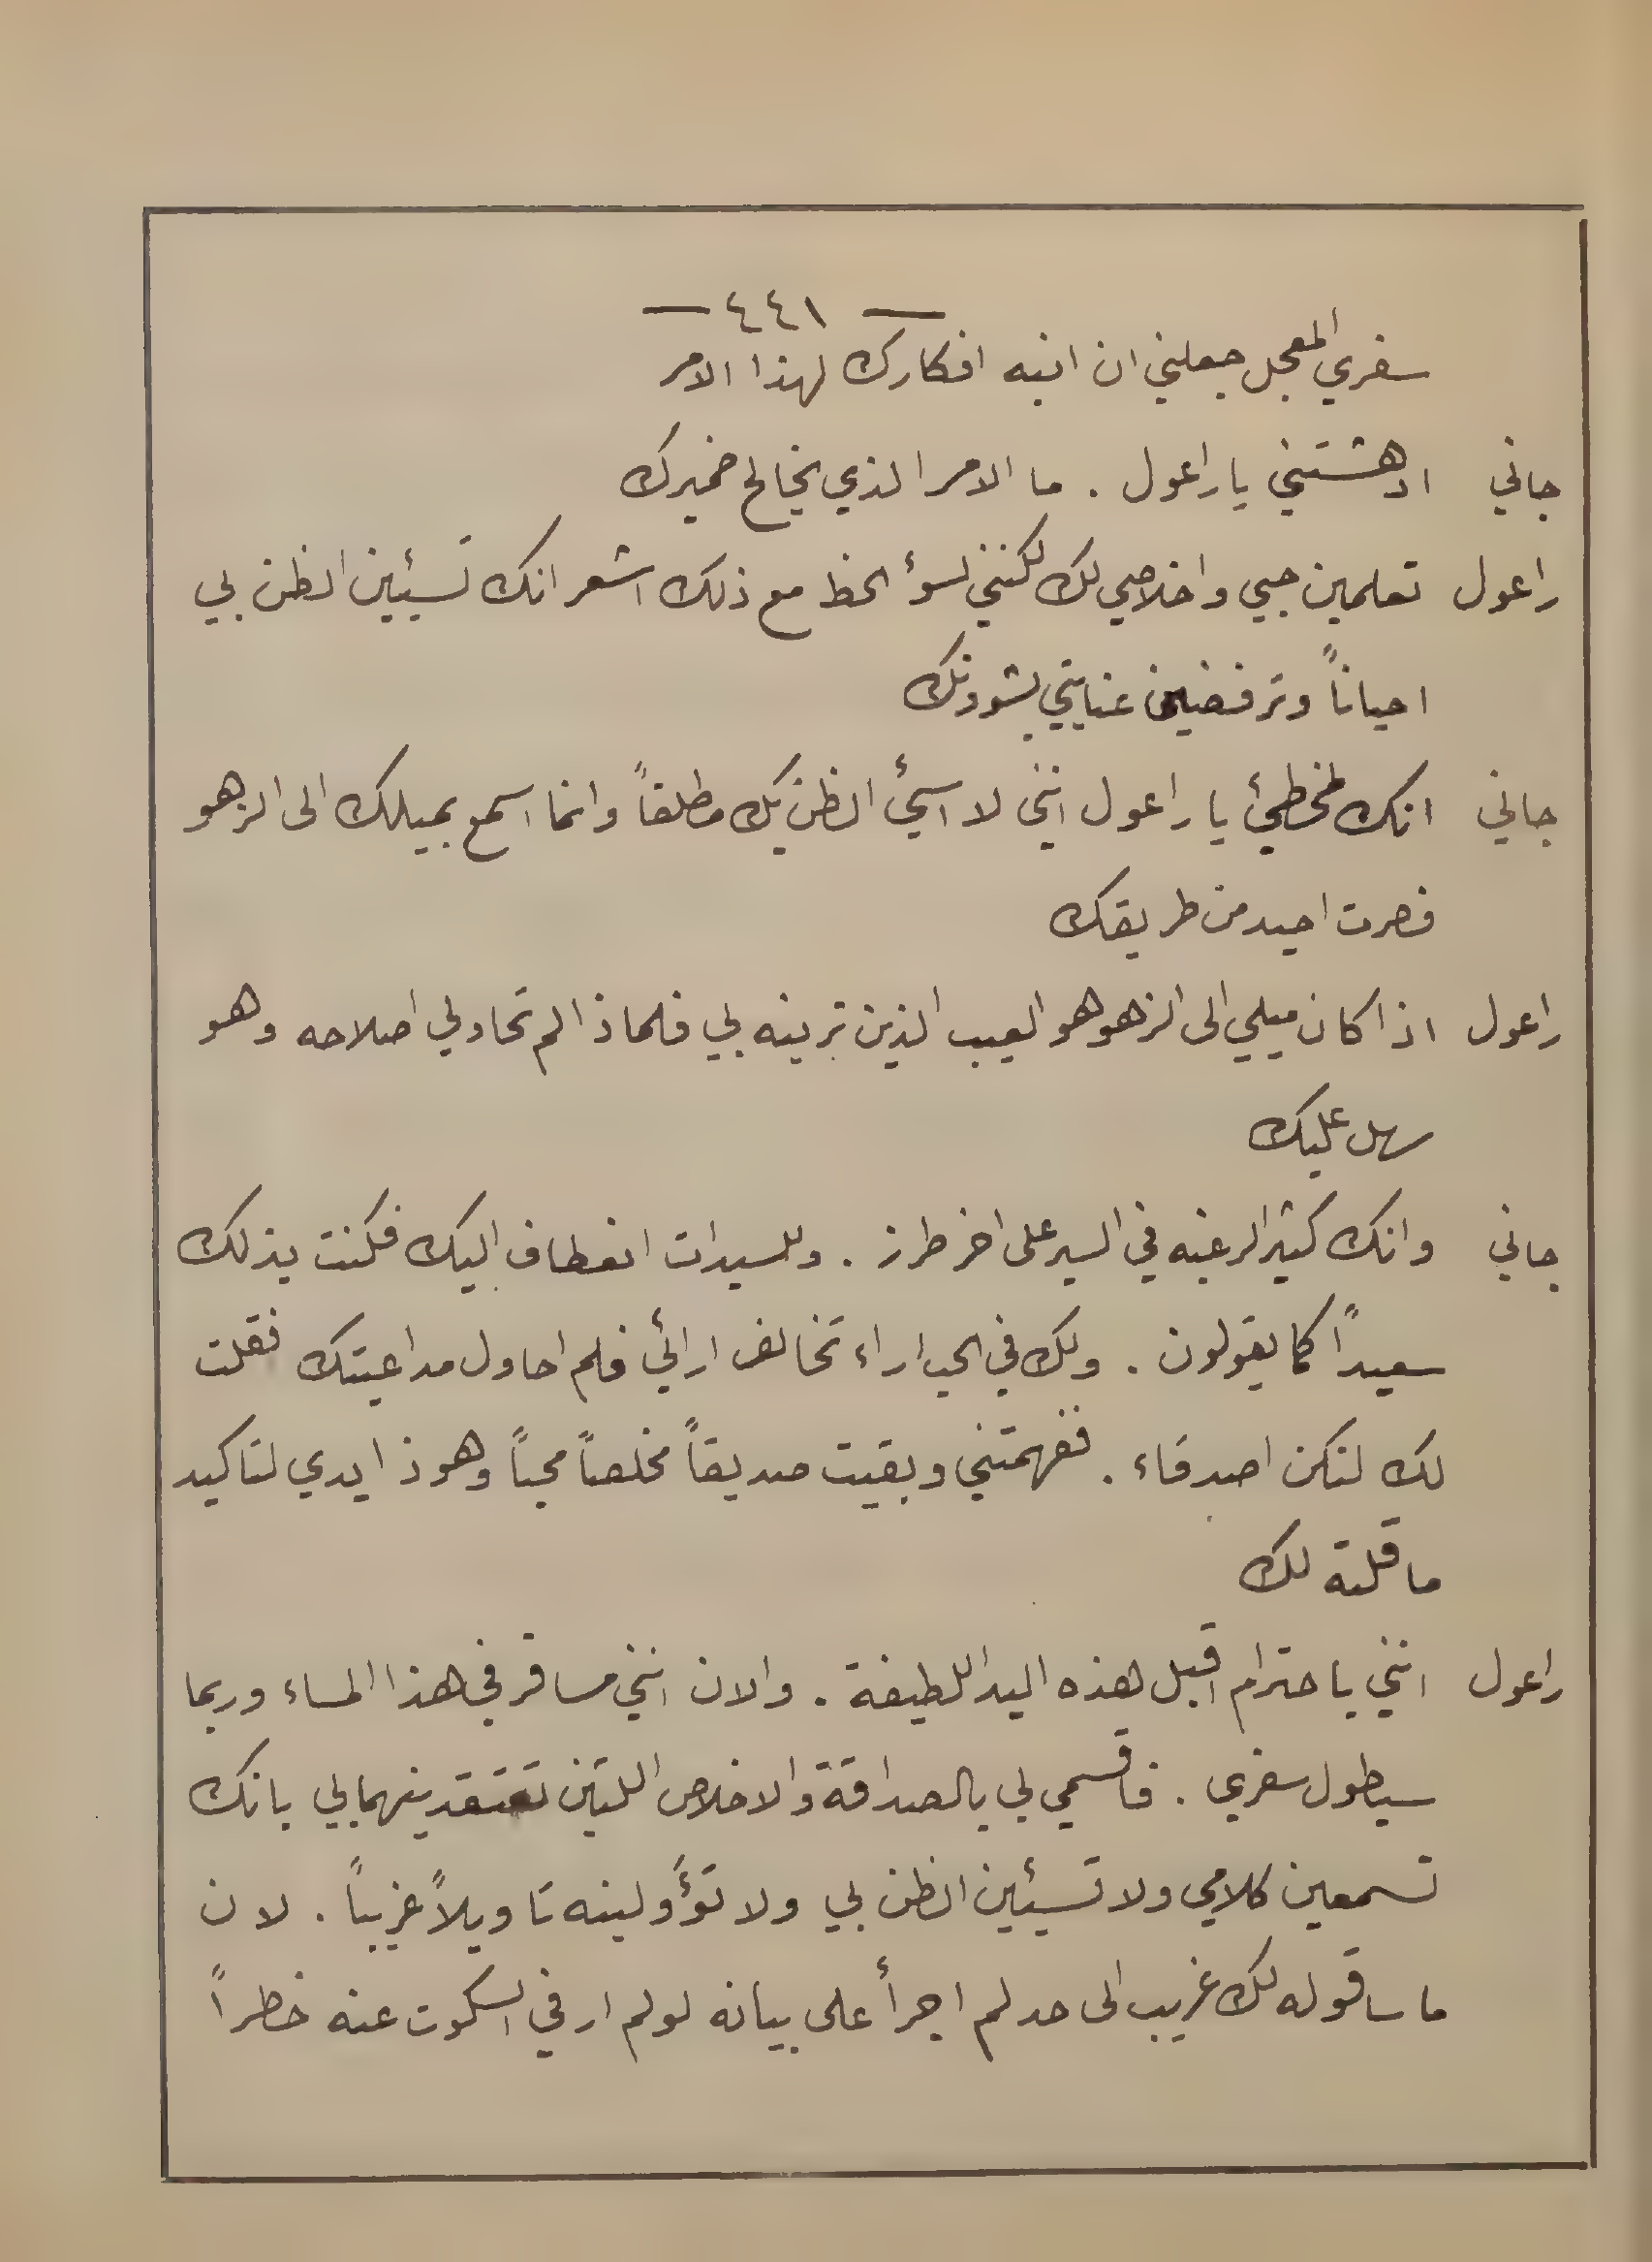 — ٤٤١ —
سفري المعجل جعلني ان انبه افكارك لهذا الامر
جاني ادهشتني يا راعول . ما الامر الذي يخالج ضميرك
راعول تعلمين حبي واخلاصي لك لكنني لسؤ الحظ مع ذلك اشعر انك تسيئين الظن بي
احياناً وترفضين عنايتي بشوونك
جاني انك لمخطئ يا راعول انني لا اسيُ الظن بك مطلقاً وانما اسمع بميلك الى الزهو
فصرت احيد من طريقك
راعول اذا كان ميلي الى الزهو هو العيب الذين ترينه بي فلماذا لم تحاولي اصلاحه وهو
سهل عليك
جاني وانك كثير الرغبه في السير على اخر طرز . وللسيدات انعطاف اليك فكنت بذلك
سعيداً كما يقولون . ولك في الحب اراء تخالف ارائي فلم احاول مداعبتك فقلت
لك لنكن اصدقاء . ففهمتني وبقيت صديقاً مخلصاً محباً وهوذا يدي لتاكيد
ما قلته لك
راعول انني باحترام اقبل هذه اليد اللطيفة . والان انني مسافر في هذا المساء وربما
سيطول سفري . فاقسمي لي بالصداقة والاخلاص اللتين تعتقدينهما بي بانك
تسمعين كلامي ولا تسيئين الظن بي ولا تؤَولينه تاويلاً غريباً . لان
ما ساقوله لك غريب الى حد لم اجرأ على بيانه لو لم ار في السكوت عنه خطراً